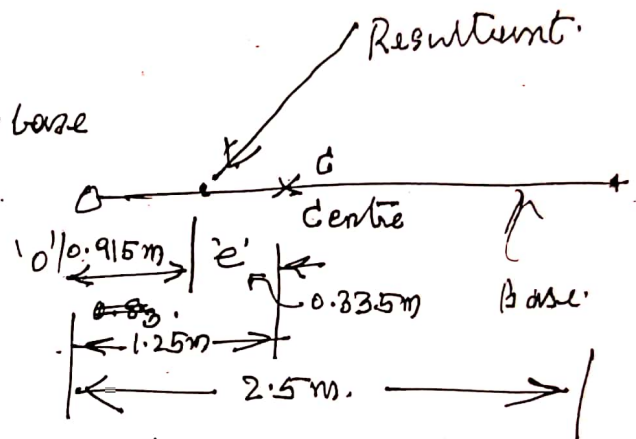 Resultunt.
base
C
Centre
'o' 0.915m 'e'
0.335m Base.
1.25m
2.5m.